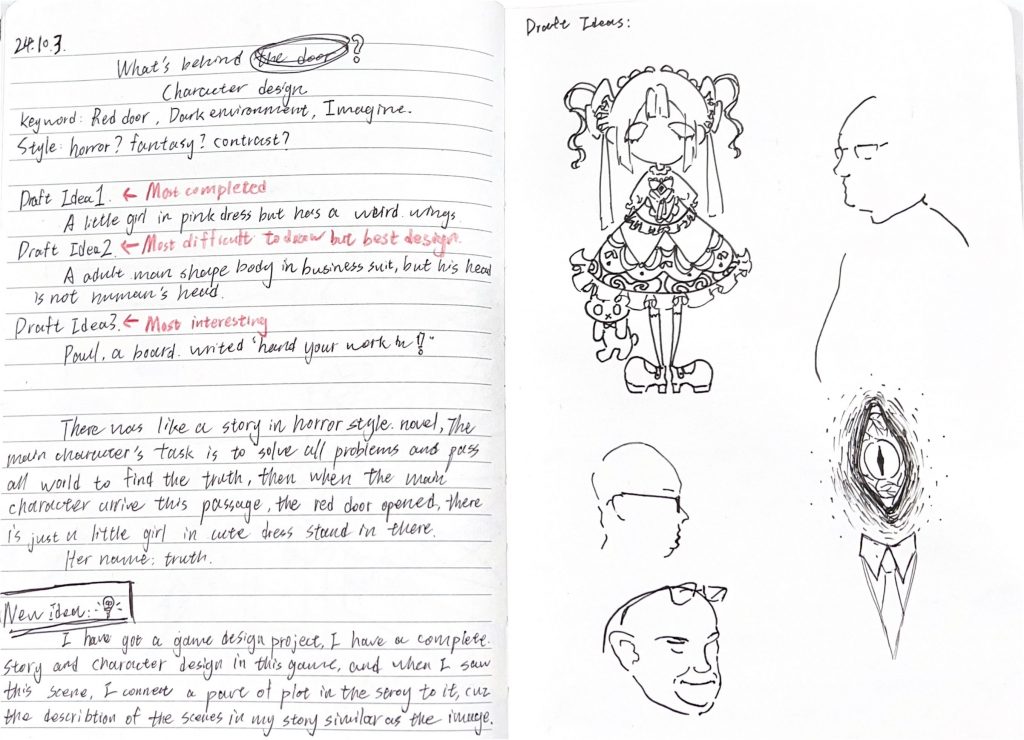 24.10.3.
What's behind the door?
Character design.
Keyword: Red door, Dark environment, Imagine.
Style: horror? fantasy? contrast?
Draft Idea1. ← Most completed
A little girl in pink dress but has a weird wings.
Draft Idea2. ← Most difficult to draw but best design.
A adult man shape body in business suit, but his head
is not human's head.
Draft Idea3. ← Most interesting
Paul, a board. writed "hand your work in!?"
There was like a story in horror style novel, The
main character's task is to solve all problems and pass
all world to find the truth, then when the main
character arrive this passage, the red door opened, there
is just a little girl in cute dress stand in there.
Her name: truth.
New idea:
I have got a game design project, I have a complete
story and character design in this game, and when I saw
this scene, I connect a part of plot in the stroy to it, cuz
the describtion of the scenes in my story similar as the image.
Draft Ideas: